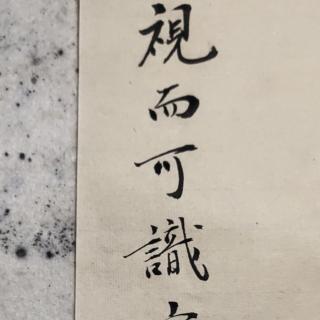 視而可識